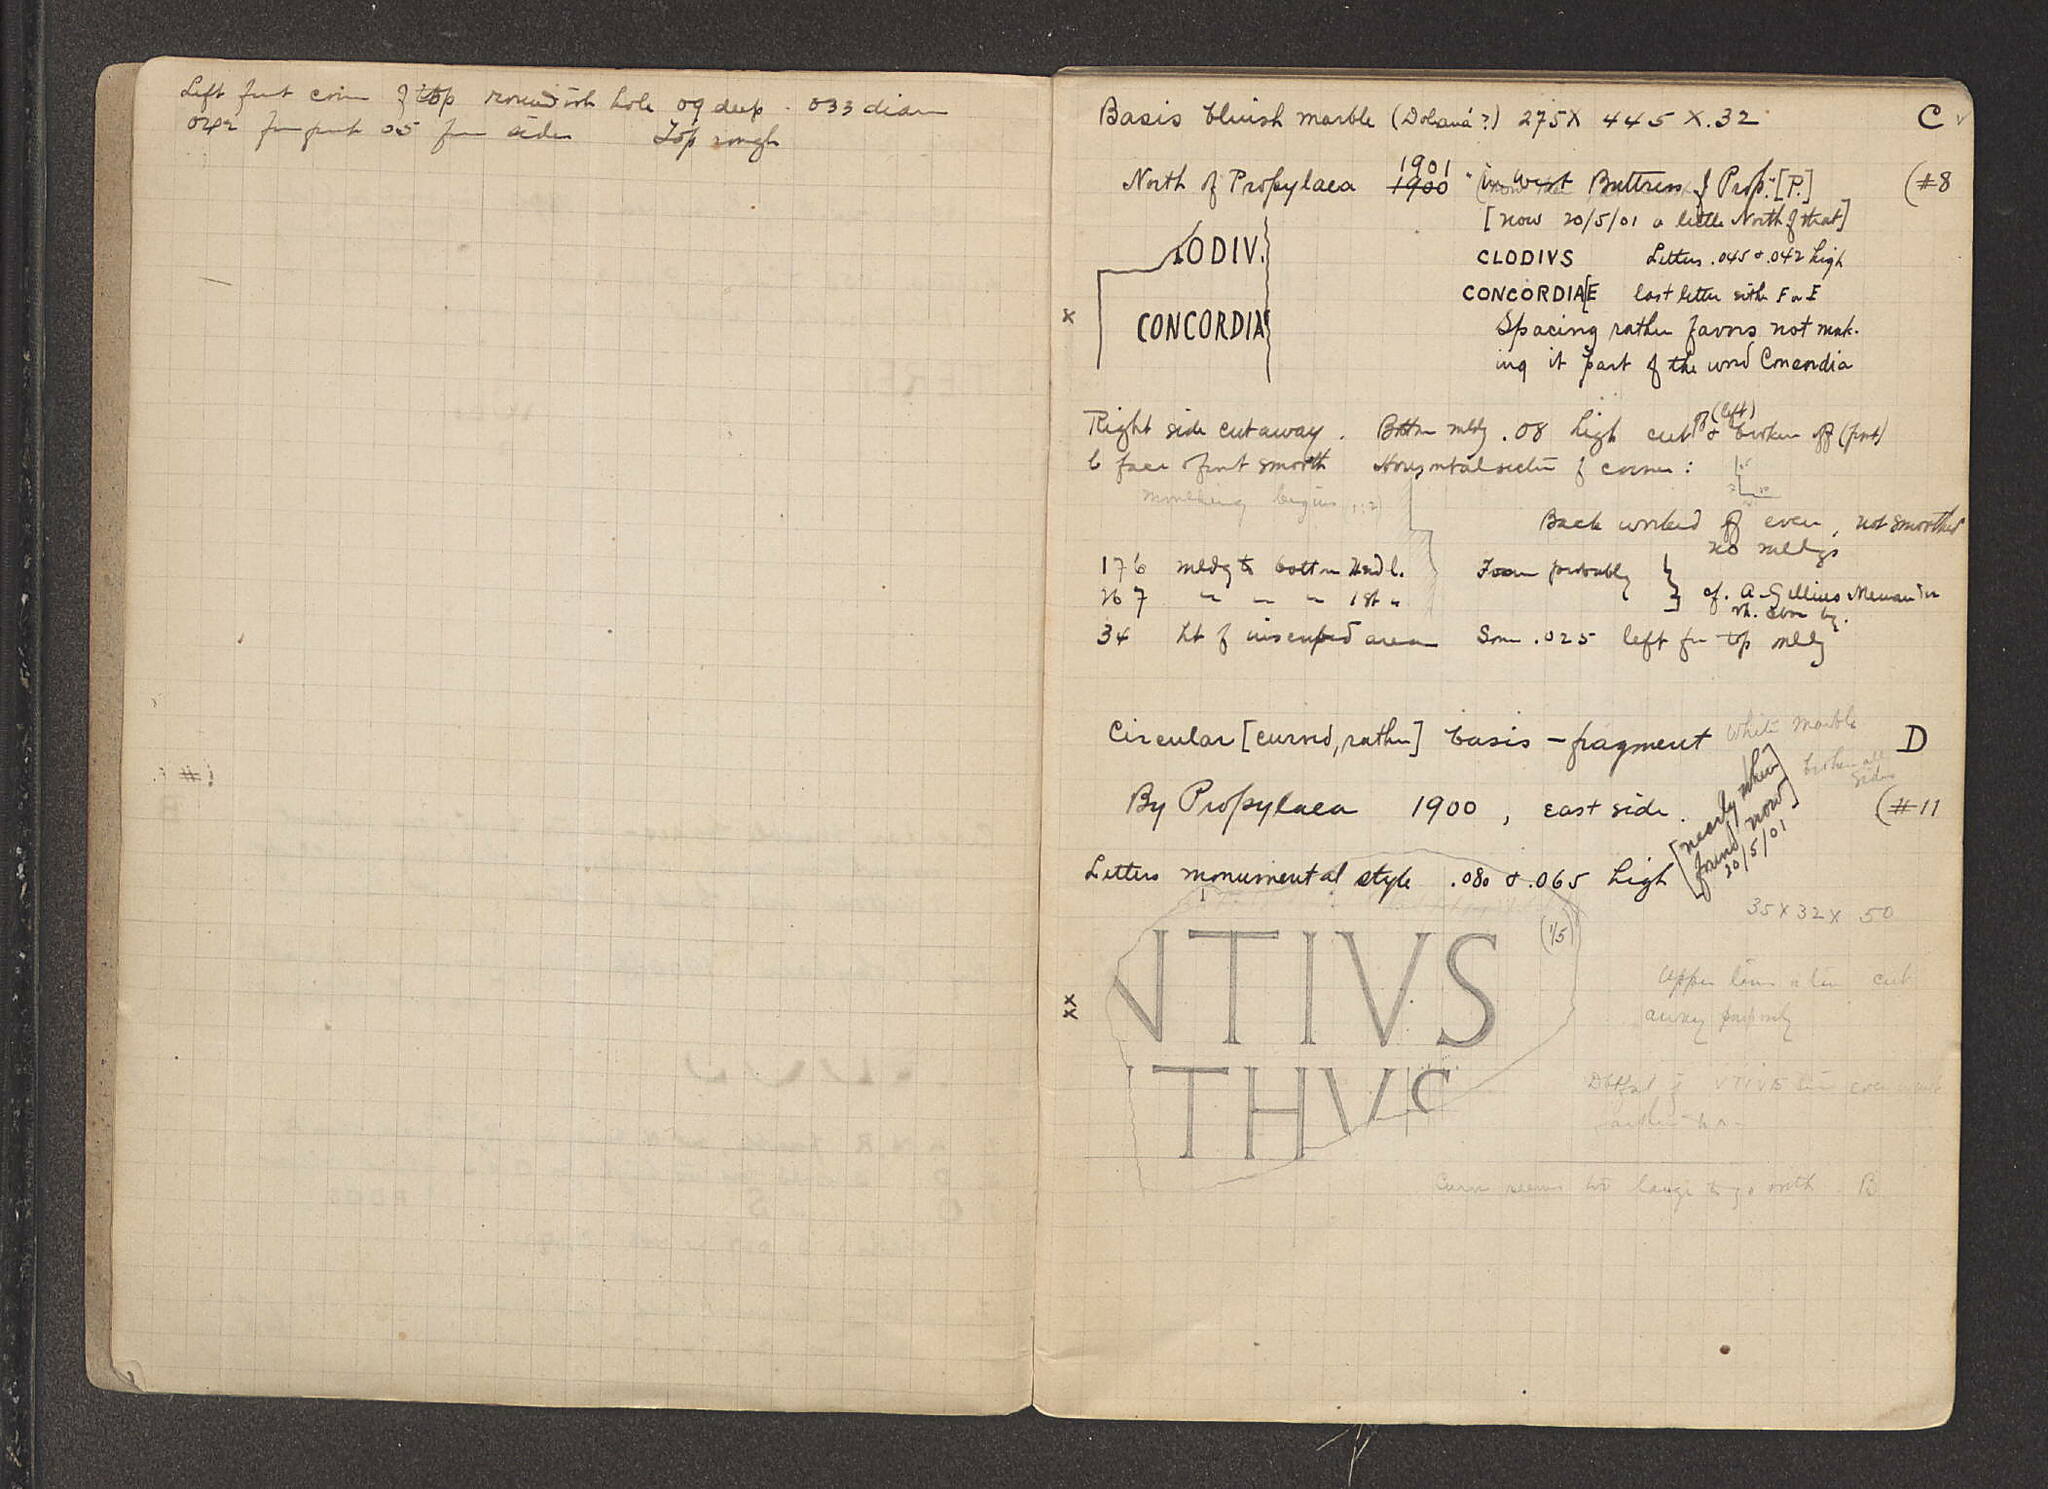 Left front corner of top roundish hole 09 deep. 033 diam
042 from front 05 from sides Top rough
Basis bluish marble (Dolianá?) 275 X 445 X .32 C
North of Propylaea 1900 1901 "in west Buttress of Prop." [P.] (#8
[now 20/5/01 a little North of that]
LODIV.
CLODIVS Letters .045 & .042 high
CONCORDIA[E last letter either F or E
x CONCORDIA
Spacing rather favors not mak-
ing it part of the word Concordia
Right side cut away. Bottom mldg .08 high cut off (left) & broken off (front)
b face of front smooth Horizontal section of corner:
moulding begins
Back worked off even, not smoothed
no mldgs
176 mldg to bottom 2nd l. From probably
267 " " " 1st " cf. A. Gellius Menander
34 ht of inscribed area Some .025 left from top mldg
Circular [curved, rather] basis-fragment White marble D
broken all
sides
By Propylaea 1900, east side. (#11
[nearly where
found now]
20/5/01
Letters monumental style .080 & .065 high
35 X 32 X 50
(1/5)
NTIVS
xx
THVS
Upper line cut
away
VTIVS line
Curve seems too large to go with B